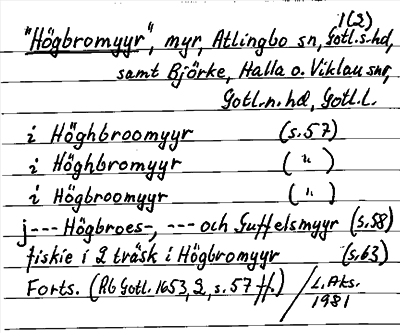 1(2)
"Högbromyyr", myr, Atlingbo sn, Gotl.s.hd,
samt Björke, Halla o. Viklau snr,
Gotl.n. hd, Gotl.l.
i Höghbroomyyr (s.57)
i Höghbromyyr ( " )
i Högbroomyyr ( " )
j--- Högbroes-, --- och Guffelsmyyr (s.58)
fiskie i 2 träsk i Högbromyyr (s.63)
Forts. (Rb Gotl. 1653, 2, s.57 ff.) / L. Aks.
1981